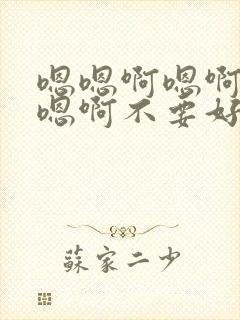 嗯嗯啊嗯啊
嗯啊不要好
蘇家二少